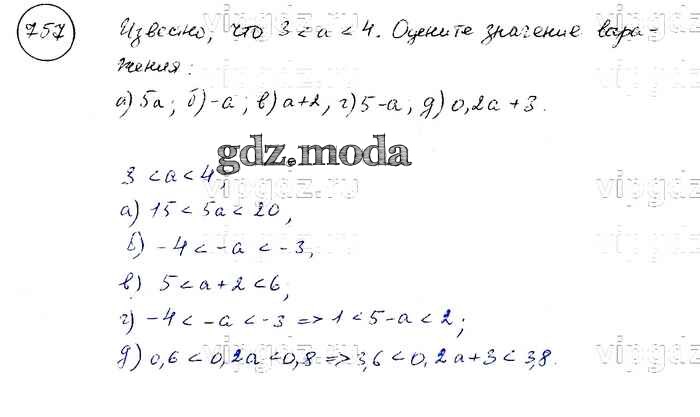 757 Известно, что 3 < a < 4. Оцените значение выра-
жения:
а) 5a; б) -a; в) a+2, г) 5-a, д) 0,2a+3.
gdz.moda
3 < a < 4,
а) 15 < 5a < 20,
б) -4 < -a < -3,
в) 5 < a+2 < 6;
г) -4 < -a < -3 => 1 < 5-a < 2;
д) 0,6 < 0,2a < 0,8 => 3,6 < 0,2a+3 < 3,8.